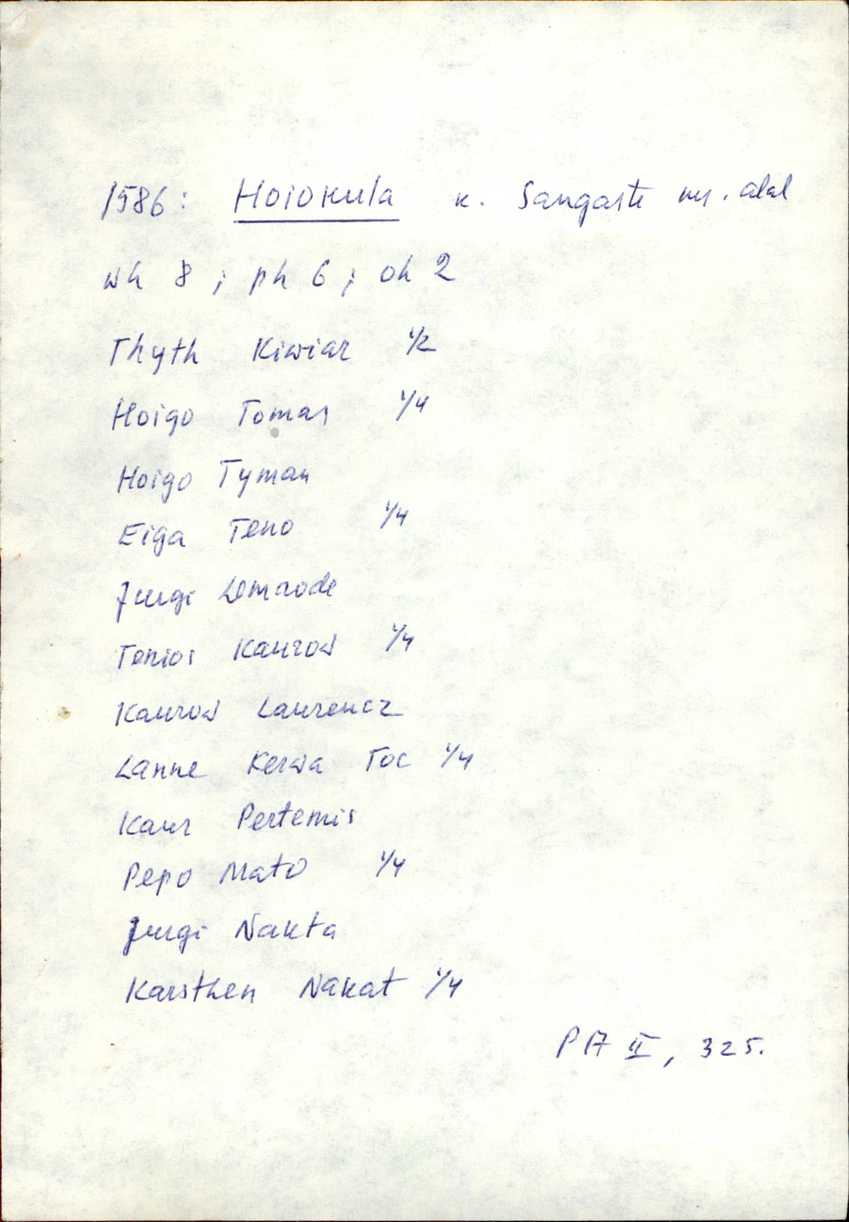 1586: Hoiokula k. Sangaste ms. alal
wh 8 ; ph 6 ; oh 2
Thyth Kiwiar 1/2
Hoigo Tomas 1/4
Hoigo Tyman
Eiga Teno 1/4
Jurgi Lemaode
Tonios Kaurow 1/4
Kaurow Laurencz
Lanne Kerwa Toc 1/4
Kaur Pertemis
Pepo Mato 1/4
Jurgi Nakta
Karsthen Nakat 1/4
PA II, 325.